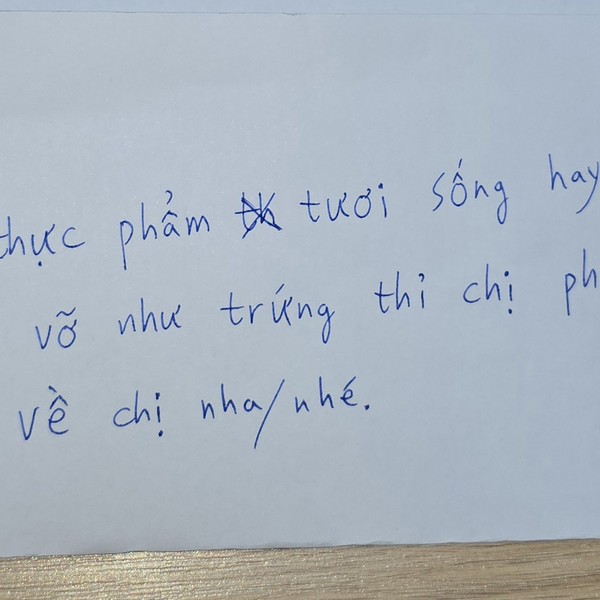 thực phẩm tươi sống hay
vỡ như trứng thỉ chị ph
về chị nha/nhé.